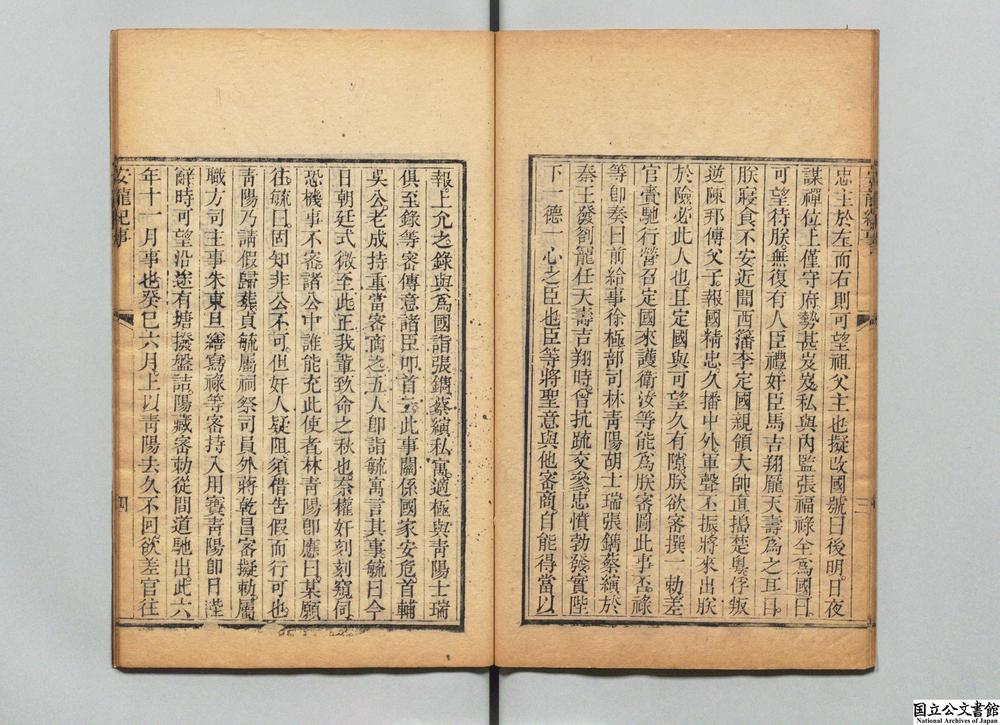 忠王於左而右則可望祖父主也擬改國號曰後明日夜
謀禪位上僅守府勢甚岌岌私與內監張福祿全為國曰
可望待朕無復有人臣禮奸臣馬吉翔龐天壽為之耳目
朕寢食不安近聞西籓李定國親領大師直搗楚粵俘叛
逆陳邦傅父子報國精忠久播中外軍聲丕振將來出朕
於險必此人也且定國與可望久有隙朕欲密撰一勅差
官賫馳行營召定國來護衛汝等能為朕密圖此事否祿
等卽奏曰前給事徐極部司林青陽胡士瑞張鐫蔡縯於
秦王發劄寵任天壽吉翔時曾抗疏交參忠憤勃發實陛
下一德一心之臣也臣等將聖意與他密商自能得當以
報上允之錄與為國詣張鐫蔡縯私寓適極與青陽士瑞
俱至錄等密傳意諸臣叩首云此事關係國家安危首輔
吳公老成持重當密商之五人卽詣毓寓言其事毓曰今
日朝廷式微至此正我輩致命之秋也奈權奸刻刻窺伺
恐機事不密諸公中誰能充此使者林青陽卽應曰某願
往毓曰固知非公不可但奸人疑阻須借告假而行可也
青陽乃請假歸葬貞毓屬祠祭司員外蔣乾昌密擬勅屬
職方司主事朱東旦繕寫祿等密持入用寶青陽卽日陛
辭時可望沿途有塘撥盤詰陽藏密勅從間道馳出此六
年十一月事也癸巳六月上以青陽去久不回欲差官往
安龍紀事
三
安龍紀事
四
国立公文書館
National Archives of Japan